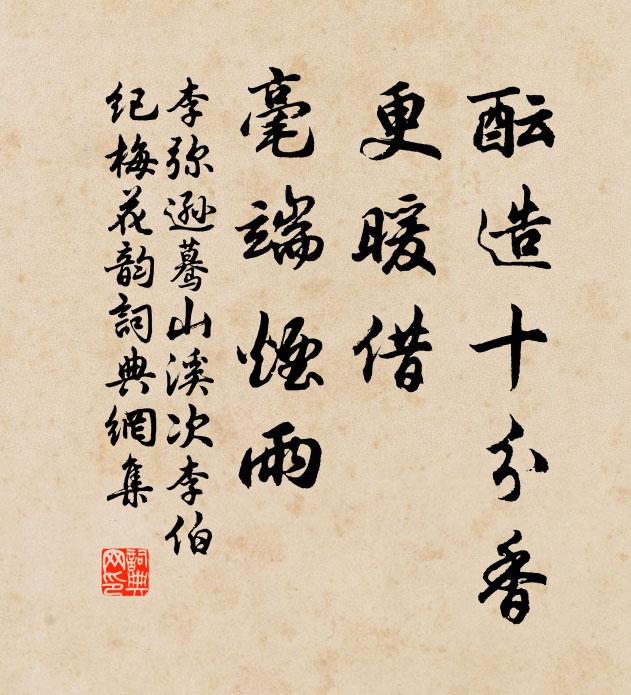 酝造十分香
更暖借
毫端煙雨
李弥遜蓦山溪次李伯
纪梅花韵詞典網集
詞典网印